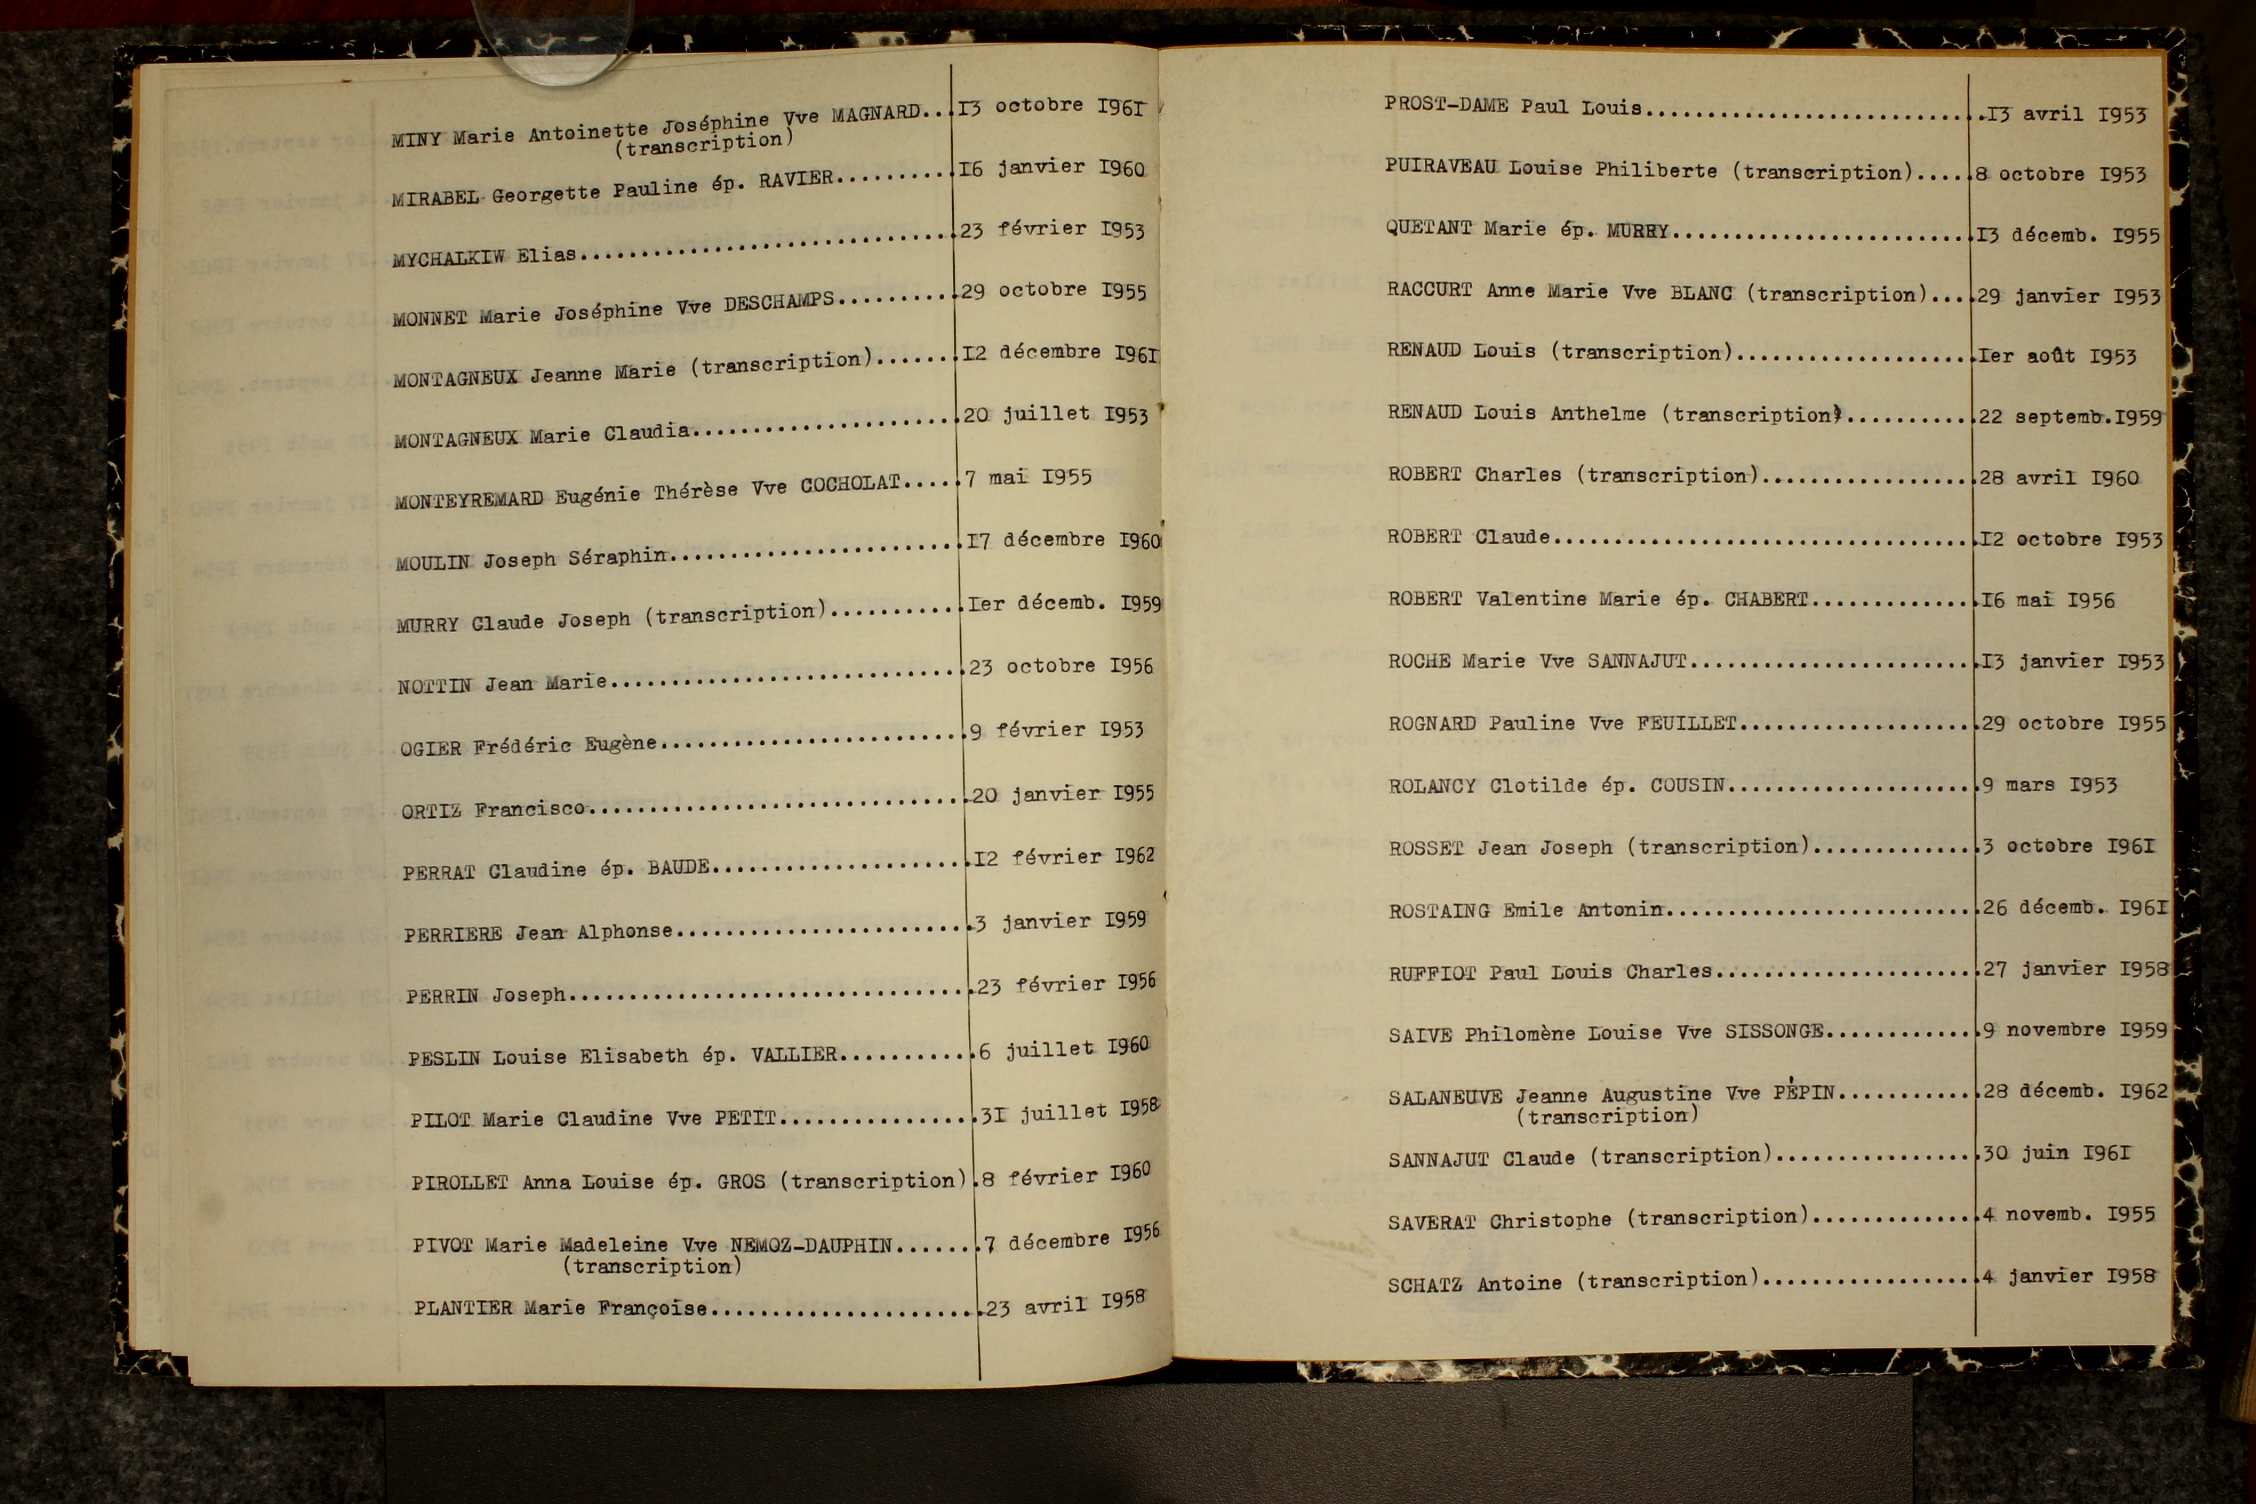 MINY Marie Antoinette Joséphine Vve MAGNARD...I3 octobre I96I
(transcription)
MIRABEL Georgette Pauline ép. RAVIER..........I6 janvier I960
MYCHALKIW Elias...............................23 février I953
MONNET Marie Joséphine Vve DESCHAMPS..........29 octobre I955
MONTAGNEUX Jeanne Marie (transcription).......I2 décembre I96I
MONTAGNEUX Marie Claudia......................20 juillet I953
MONTEYREMARD Eugénie Thérèse Vve COCHOLAT.....7 mai I955
MOULIN Joseph Séraphin........................I7 décembre I960
MURRY Claude Joseph (transcription)...........Ier décemb. I959
NOTTIN Jean Marie.............................23 octobre I956
OGIER Frédéric Eugène.........................9 février I953
ORTIZ Francisco...............................20 janvier I955
PERRAT Claudine ép. BAUDE.....................I2 février I962
PERRIERE Jean Alphonse........................3 janvier I959
PERRIN Joseph.................................23 février I956
PESLIN Louise Elisabeth ép. VALLIER...........6 juillet I960
PILOT Marie Claudine Vve PETIT................3I juillet I958
PIROLLET Anna Louise ép. GROS (transcription).8 février I960
PIVOT Marie Madeleine Vve NEMOZ-DAUPHIN.......7 décembre I956
(transcription)
PLANTIER Marie Françoise......................23 avril I958
PROST-DAME Paul Louis............................I3 avril I953
PUIRAVEAU Louise Philiberte (transcription).....8 octobre I953
QUETANT Marie ép. MURRY.........................I3 décemb. I955
RACCURT Anne Marie Vve BLANC (transcription)....29 janvier I953
RENAUD Louis (transcription)....................Ier août I953
RENAUD Louis Anthelme (transcription)...........22 septemb.I959
ROBERT Charles (transcription)..................28 avril I960
ROBERT Claude...................................I2 octobre I953
ROBERT Valentine Marie ép. CHABERT..............I6 mai I956
ROCHE Marie Vve SANNAJUT........................I3 janvier I953
ROGNARD Pauline Vve FEUILLET....................29 octobre I955
ROLANCY Clotilde ép. COUSIN.....................9 mars I953
ROSSET Jean Joseph (transcription)..............3 octobre I96I
ROSTAING Emile Antonin..........................26 décemb. I96I
RUFFIOT Paul Louis Charles......................27 janvier I958
SAIVE Philomène Louise Vve SISSONGE.............9 novembre I959
SALANEUVE Jeanne Augustine Vve PÉPIN............28 décemb. I962
(transcription)
SANNAJUT Claude (transcription).................30 juin I96I
SAVERAT Christophe (transcription)..............4 novemb. I955
SCHATZ Antoine (transcription)..................4 janvier I958